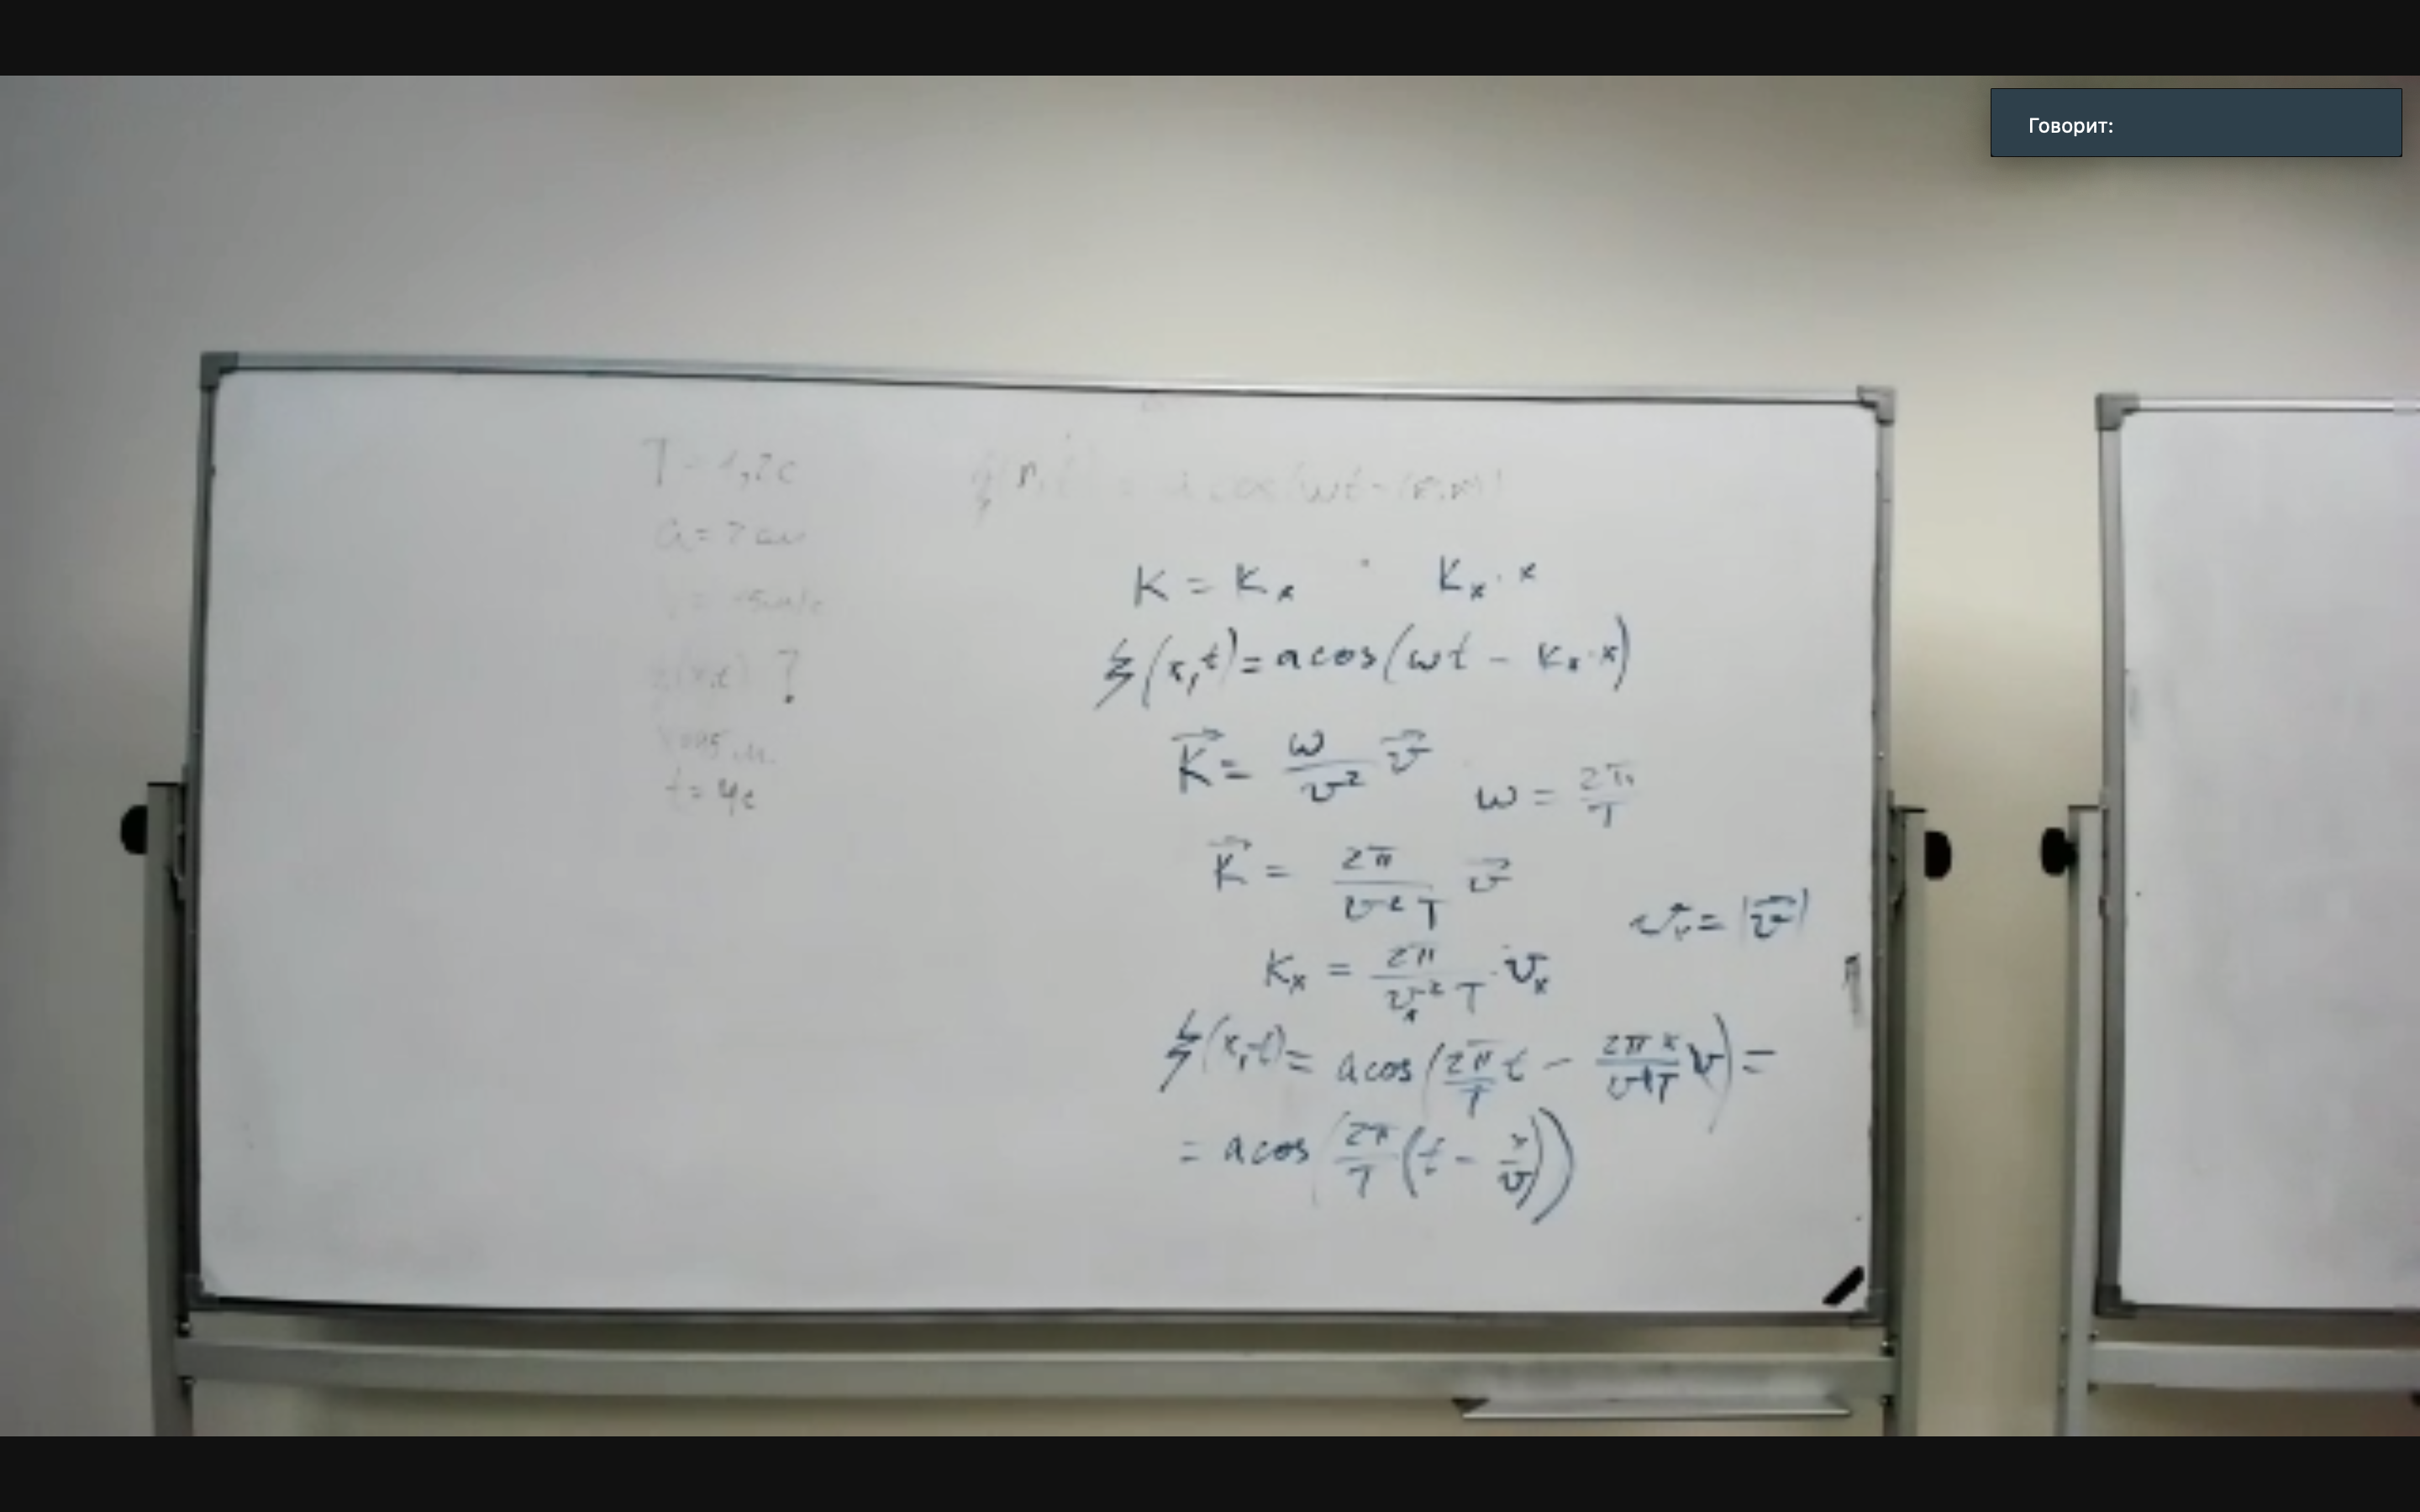 Говорит:
T = 1,2 c
a = 2 см
ξ(x,t) ?
x = 45 м.
t = 4c
ξ(r,t) = a cos(ωt - (
K = Kₓ Kₓ · x
ξ(x,t) = a cos(ωt - Kₓ · x)
K⃗ = ω/v² v⃗ ω = 2π/T
K⃗ = 2π/(v²T) v⃗
vₓ = |v⃗|
Kₓ = 2π/(vₓ²T) · vₓ
ξ(x,t) = a cos(2π/T t - 2πx/(v²T) v) =
= a cos(2π/T (t - x/v))